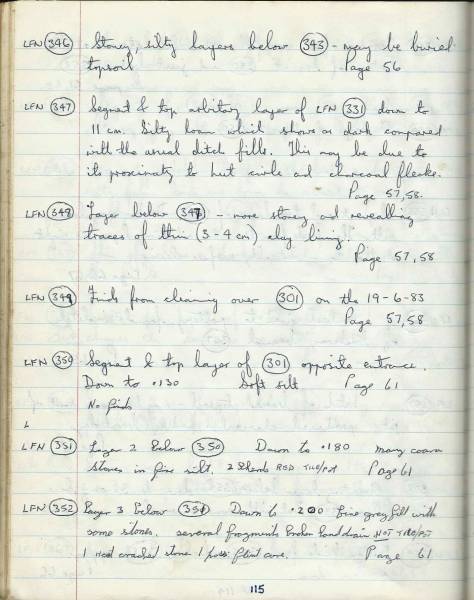 LFN (346) Stoney, silty layers below (343) - may be buried
topsoil Page 56
LFN (347) Segment & top arbitary layer of LFN (331) down to
11 cm. Silty loam which shows as dark compared
with the usual ditch fills. This may be due to
its proximity to hut circle and charcoal flecks.
Page 57,58.
LFN (348) Layer below (347) - more stoney and revealing
traces of thin (3-4 cm) clay lining.
Page 57,58
LFN (349) Finds from cleaning over (301) on the 19-6-83
Page 57,58
LFN (350) Segment & top layer of (301) opposite entrance.
Down to .130 Soft silt Page 61
No finds
LFN (351) Layer 2 Below (350) Down to .180 many
stones in fine silt. 2 sherds RSD TILE/POT Page 61
LFN (352) Layer 3 Below (351) Down to .200 fine grey fill with
some stones. several fragments broken land drain NOT TILE/POT
1 Heat cracked stone 1 poss. flint core. Page 61
115